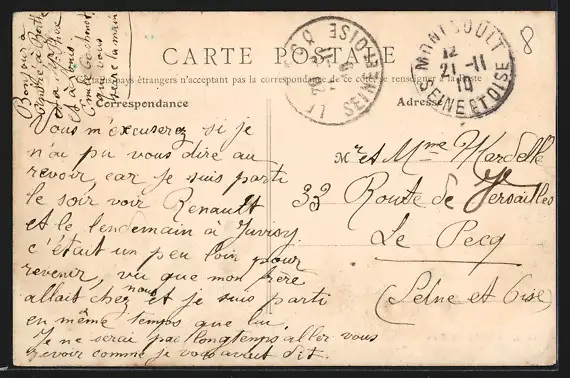 Bonjour à
CARTE POSTALE
Tous les pays étrangers n'acceptant pas la correspondance de ce côté, se renseigner à la Poste
Correspondance
Adresse
LE
SEINE ET OISE
MONTSOULT
12
21 -11
10
SEINE ET OISE
8
Vous m'excuserez si je
n'ai pu vous dire au
revoir, car je suis parti
le soir voir Renault
et le lendemain à Juvisy
c'était un peu loin pour
revenir, vu que mon frère
allait chez nous et je suis parti
en même temps que lui.
Je ne serai pas longtemps aller vous
revoir comme je vous avait dit.
Mr et Mme Mardelle
33 Route de Versailles
Le Pecq
(Seine et Oise)